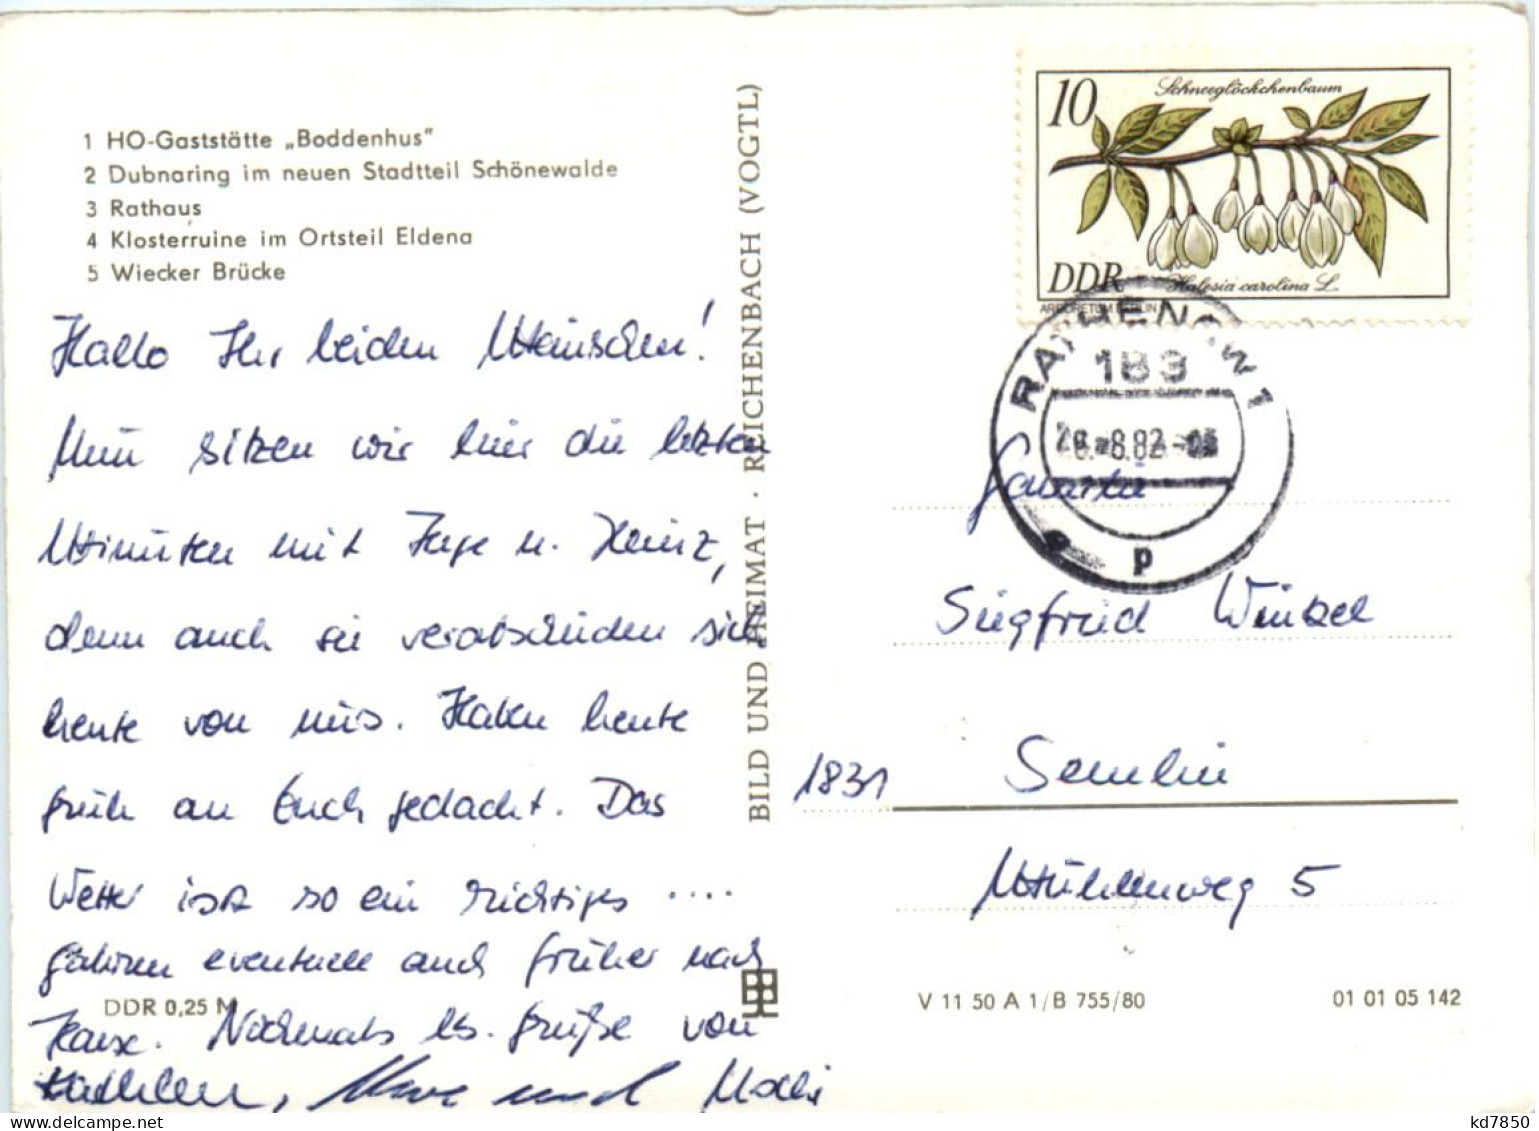 1 HO-Gaststätte „Boddenhus"
2 Dubnaring im neuen Stadtteil Schönewalde
3 Rathaus
4 Klosterruine im Ortsteil Eldena
5 Wiecker Brücke
Hallo Ihr beiden Menschen!
Nun sitzen wir hier die letzten
Minuten mit Inge u. Heinz,
denn auch sie verabschieden sich
heute von uns. Haben heute
früh an Euch gedacht. Das
Wetter ist so ein richtiges ....
fahren eventuell auch früher nach
Hause. Nochmals lb. Grüße von
Kathleen, Uwe und
DDR 0,25 M
BILD UND HEIMAT · REICHENBACH (VOGTL)
10
Schneeglöckchenbaum
DDR
Halesia carolina L.
ARBORETUM BERLIN
RATHENOW 1
183
p
Familie
Siegfried Winkel
1831 Semlin
Mühlenweg 5
V 11 50 A 1/B 755/80
01 01 05 142
kd7850